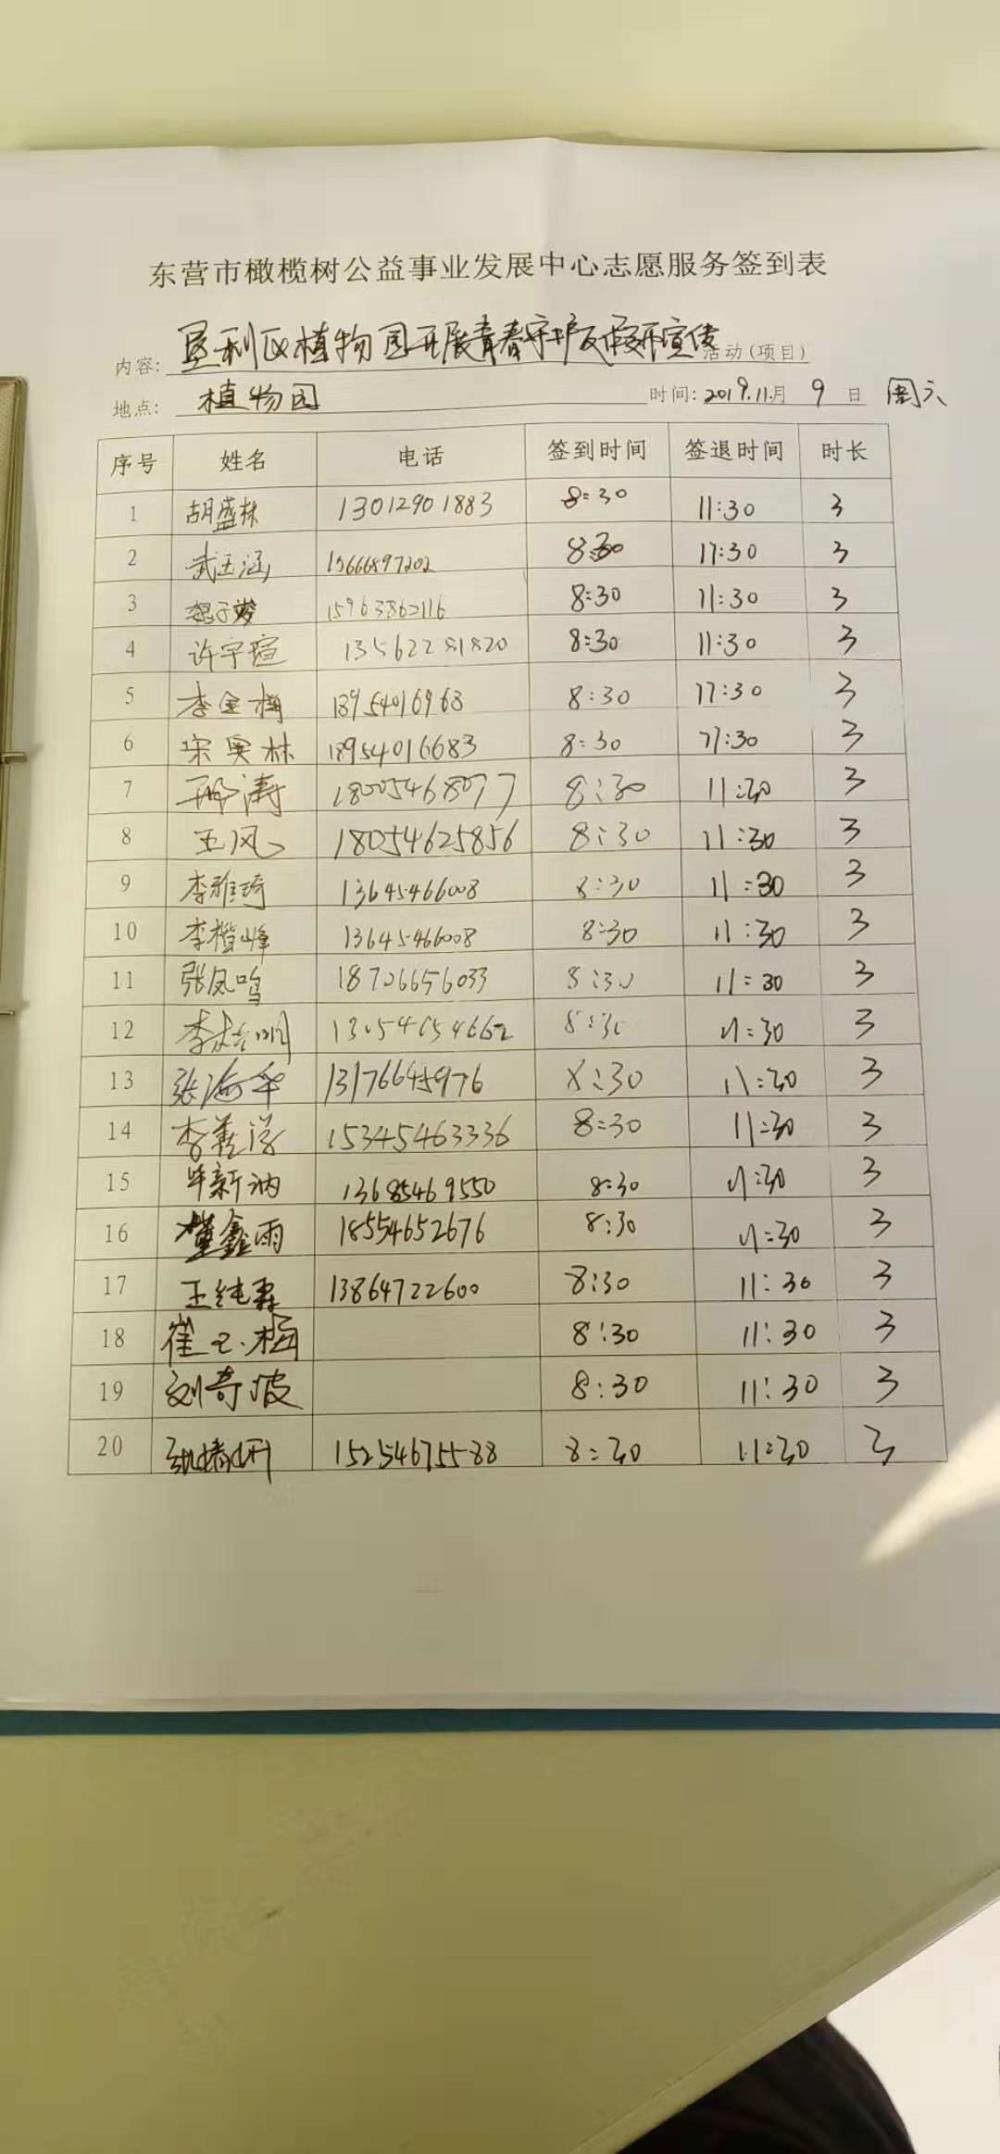 东营市橄榄树公益事业发展中心志愿服务签到表
内容: 垦利区植物园开展青春守护反宣传活动(项目)
地点: 植物园 时间: 2019.11月 9 日 周六
序号 姓名 电话 签到时间 签退时间 时长
1 胡盛林 13012901883 8:30 11:30 3
2 武玉涵 15666897202 8:30 11:30 3
3 15963862116 8:30 11:30 3
4 许宇瑄 13562281820 8:30 11:30 3
5 李金梅 18954016968 8:30 11:30 3
6 宋奥林 18954016683 8:30 11:30 3
7 邢涛 18005468077 8:30 11:30 3
8 王风 18054625856 8:30 11:30 3
9 李雅琦 13645466008 8:30 11:30 3
10 李楷峰 13645466008 8:30 11:30 3
11 张凤鸣 18706656033 8:30 11:30 3
12 8:30 11:30 3
13 13176645976 8:30 11:30 3
14 15345463336 8:30 11:30 3
15 毕新讷 13685469550 8:30 11:30 3
16 董鑫雨 18554652676 8:30 11:30 3
17 王纯霖 13864722600 8:30 11:30 3
18 崔玉梅 8:30 11:30 3
19 刘奇波 8:30 11:30 3
20 15254675588 8:30 11:30 3